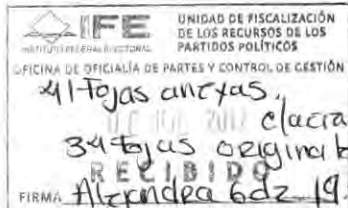 IFE
INSTITUTO FEDERAL ELECTORAL
UNIDAD DE FISCALIZACIÓN
DE LOS RECURSOS DE LOS
PARTIDOS POLÍTICOS
OFICINA DE OFICIALÍA DE PARTES Y CONTROL DE GESTIÓN
41 fojas anexas,
2012
34 fojas
RECIBIDO
FIRMA Alexandra Gdz 19.